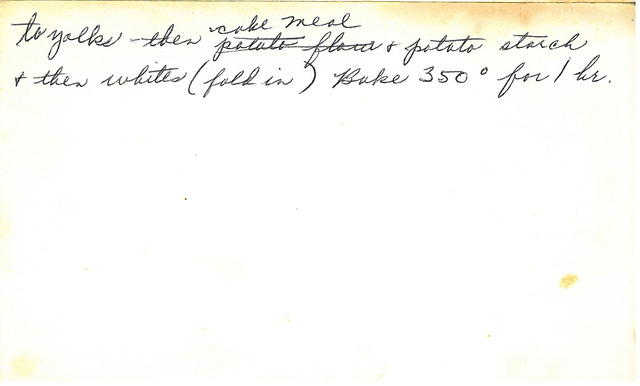 to yolks - then cake meal
potato flour & potato starch
& then whites (fold in) Bake 350° for 1 hr.